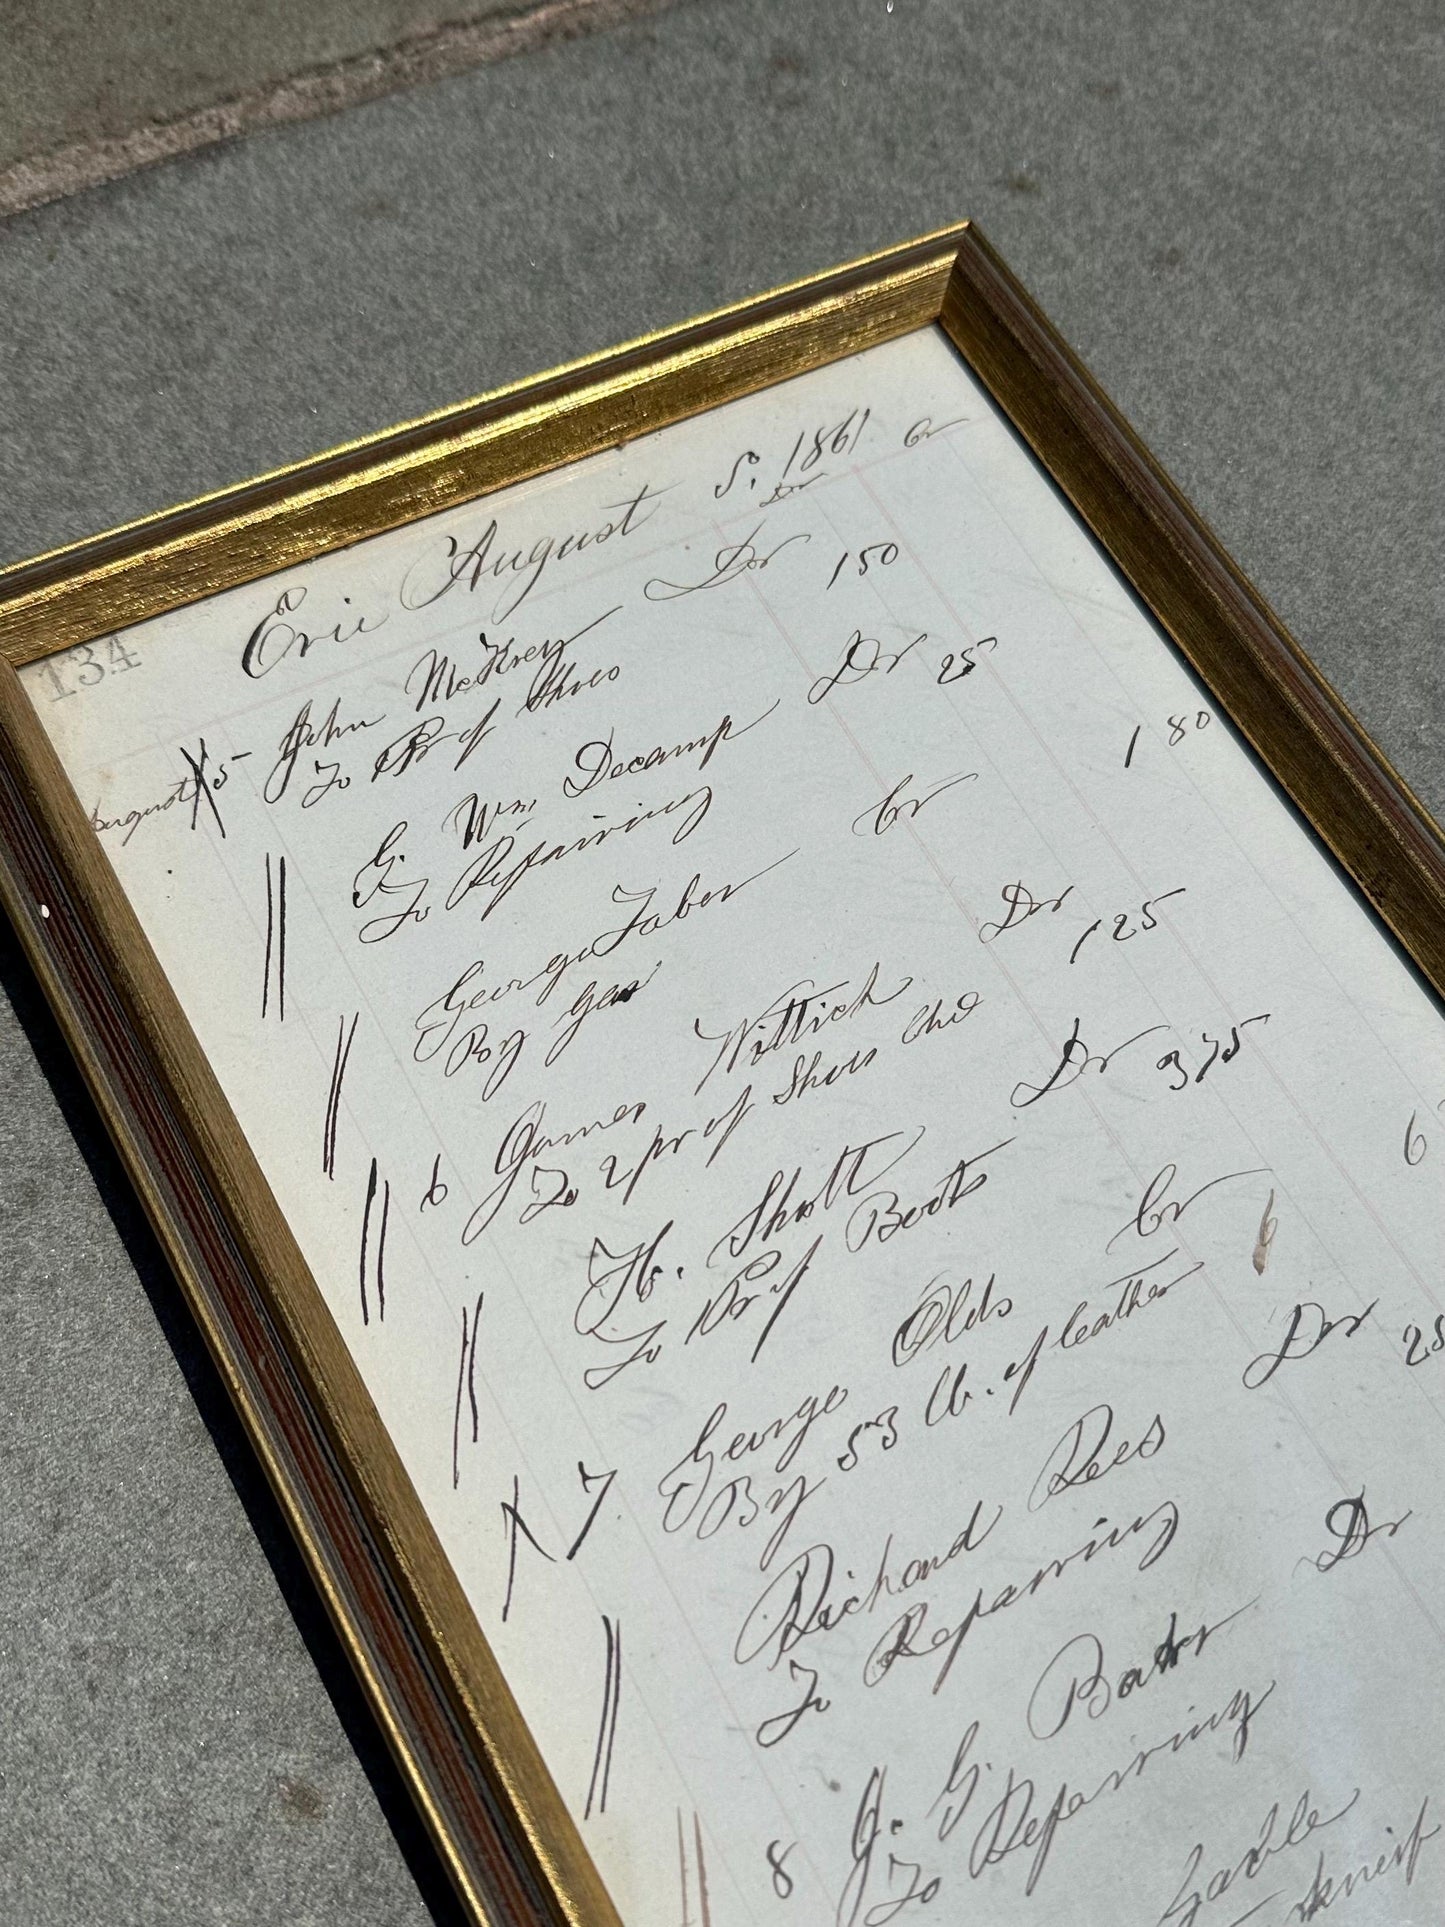 134
Erie August 5. 1861
Dr Cr
August 5 John McKrey Dr 150
To Pr of Shoes
G. Wm Decamp Dr 25
To Repairing
George Faber Cr 1 80
By
6 James Wittich Dr 125
To 2 pr of Shoes Chd
H. Shott Dr 375
To Pr of Boots
7 George Olds Cr 6
By 53 lb. of leather 6
Richard Rees Dr 25
To Repairing
8 J. G. Dr
To Repairing